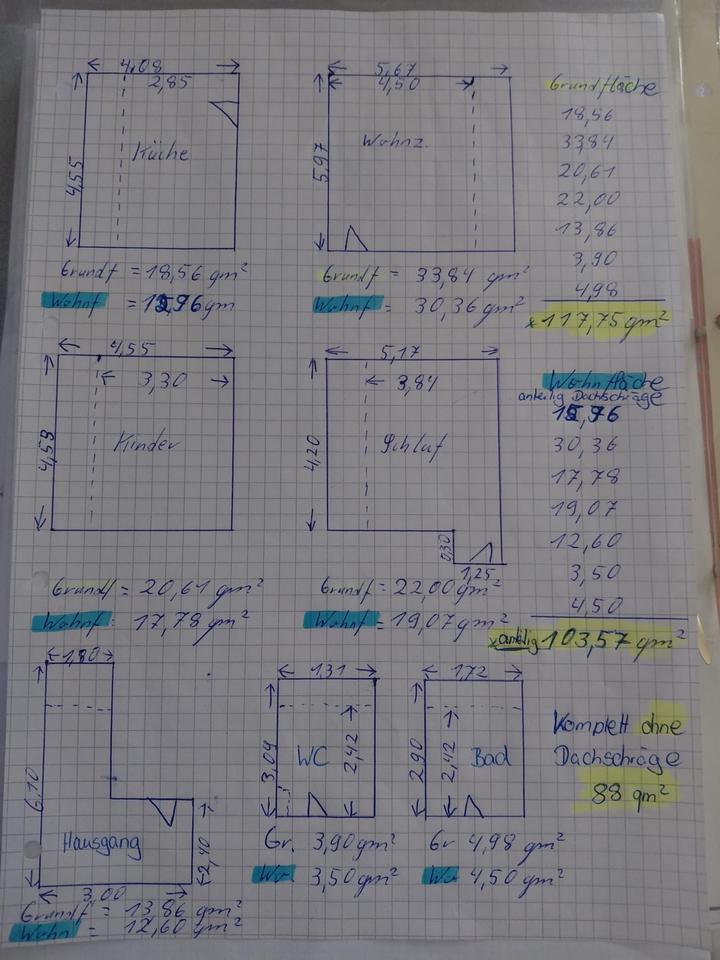 4,08
2,85
4,55
Küche
Grundf = 18,56 qm²
Wohnf = 15,96 qm
5,67
4,50
5,97
Wohnz.
Grundf = 33,84 qm²
Wohnf = 30,36 qm²
Grundfläche
18,56
33,84
20,61
22,00
13,86
3,90
4,98
x 117,75 qm²
4,55
3,30
4,59
Kinder
Grundf = 20,61 qm²
Wohnf: 17,78 qm²
5,17
3,84
4,20
Schlaf
0,30
1,25
Grundf = 22,00 qm²
Wohnf = 19,07 qm²
Wohnfläche
anteilig Dachschräge
15,96
30,36
17,78
19,07
12,60
3,50
4,50
x anteilig 103,57 qm²
1,80
6,10
Hausgang
2,40
3,00
Grundf = 13,86 qm²
Wohn = 12,60 qm²
1,31
3,09
WC
2,42
Gr. 3,90 qm²
Wo. 3,50 qm²
1,72
2,90
2,42
Bad
Gr 4,98 qm²
Wo 4,50 qm²
Komplett ohne
Dachschräge
88 qm²